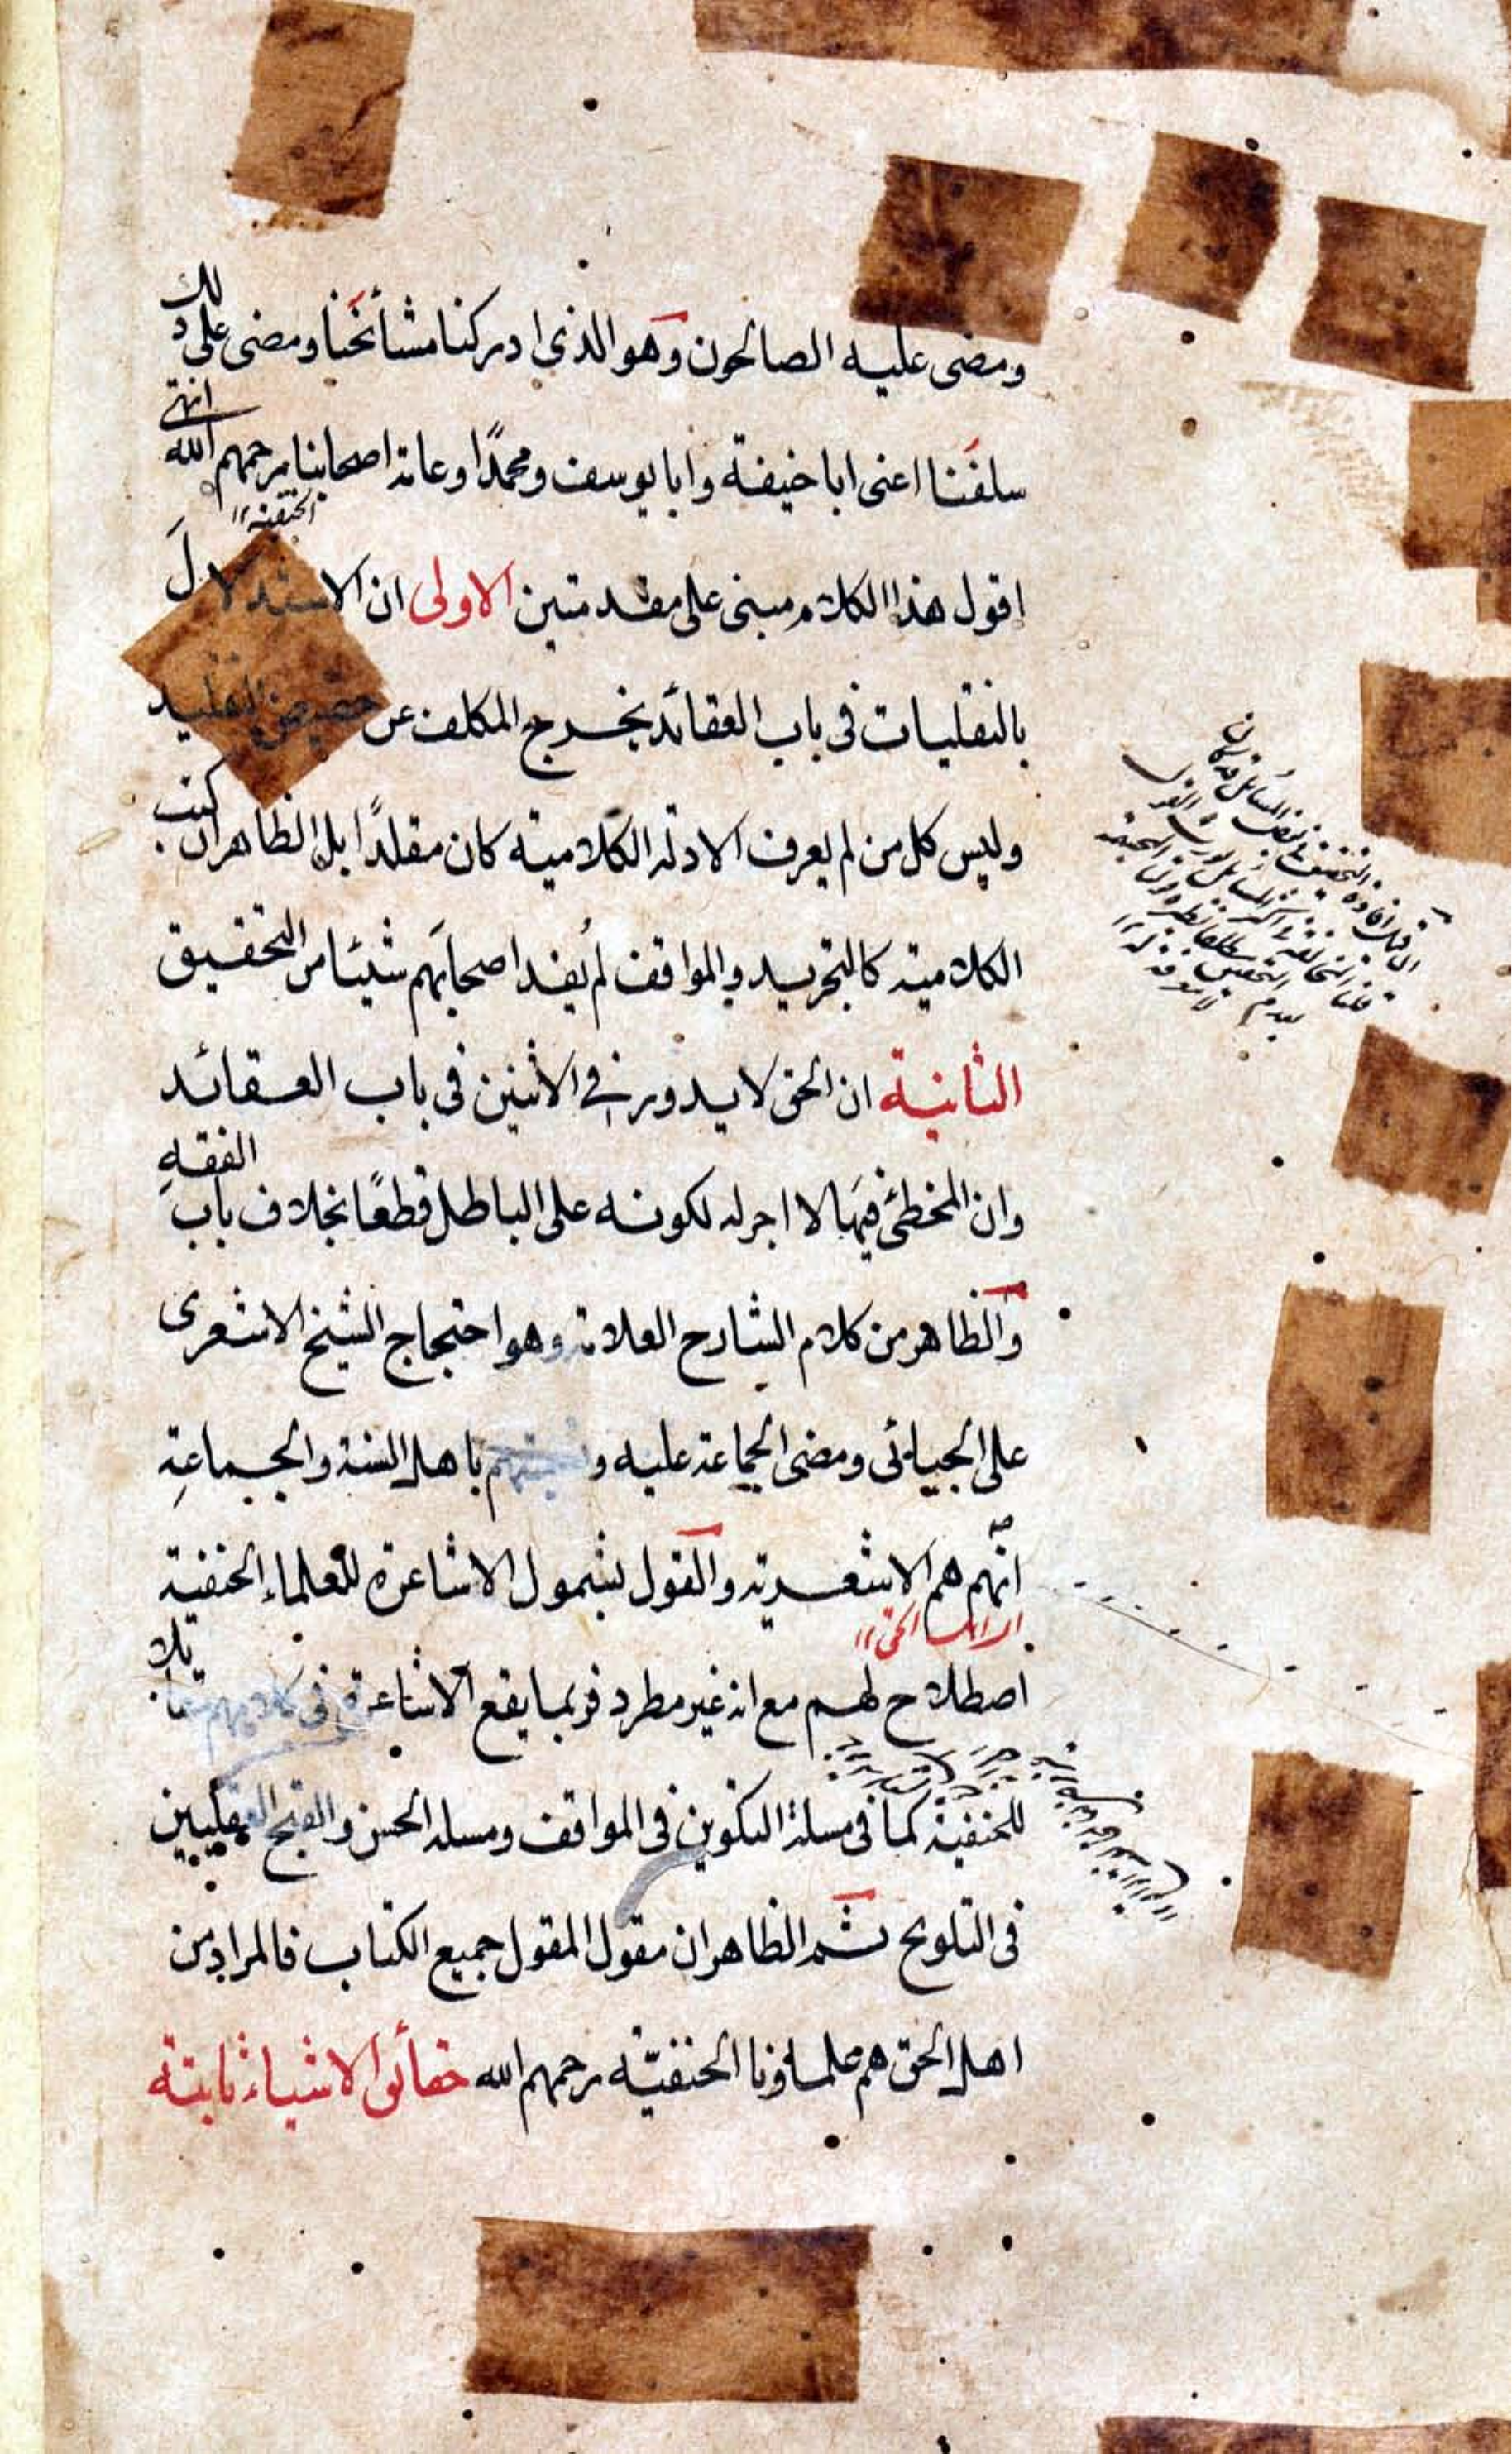 ومضى عليه الصالحون وهو الذى ادركنا مشائخنا ومضى على ذلك
سلفنا اعنى ابا حنيفة وابا يوسف ومحمدًا وعامة اصحابنا رحمهم الله انتهى
الحنفية
اقول هذا الكلام مبنى على مقدمتين الاولى ان الاستدلال
بالنقليات فى باب العقائد يخرج المكلف عن حضيض التقليد
وليس كل من لم يعرف الادلة الكلامية كان مقلدًا بل الظاهر ان كتب
الكلامية كالتجريد والمواقف لم يُفد اصحابَهم شيئا من التحقيق
الثانية ان الحق لا يدور فى الاثنين فى باب العقائد
وان المخطئ فيها لا اجر له لكونه على الباطل قطعًا بخلاف باب الفقهِ
والظاهر من كلام الشارح العلامة وهو احتجاج الشيخ الاشعرى
على الجبائى ومضى الجماعة عليه و باهل السنة والجماعةِ
انّهم هم الاشعرية والقول بشمول الاشاعرة للعلماء الحنفية
اصطلاح لهم مع انه غير مطرد فربما يقع الاشاعرة فى كلامهم مقابلا
للحنفية كما فى مسئلة التكوين فى المواقف ومسئلة الحسن والقبح العقليين
فى التلويح ثم الظاهر ان مقول المقول جميع الكتاب فالمراد من
اهل الحق هم علماؤنا الحنفيّة رحمهم الله حقائق الاشياء ثابتة